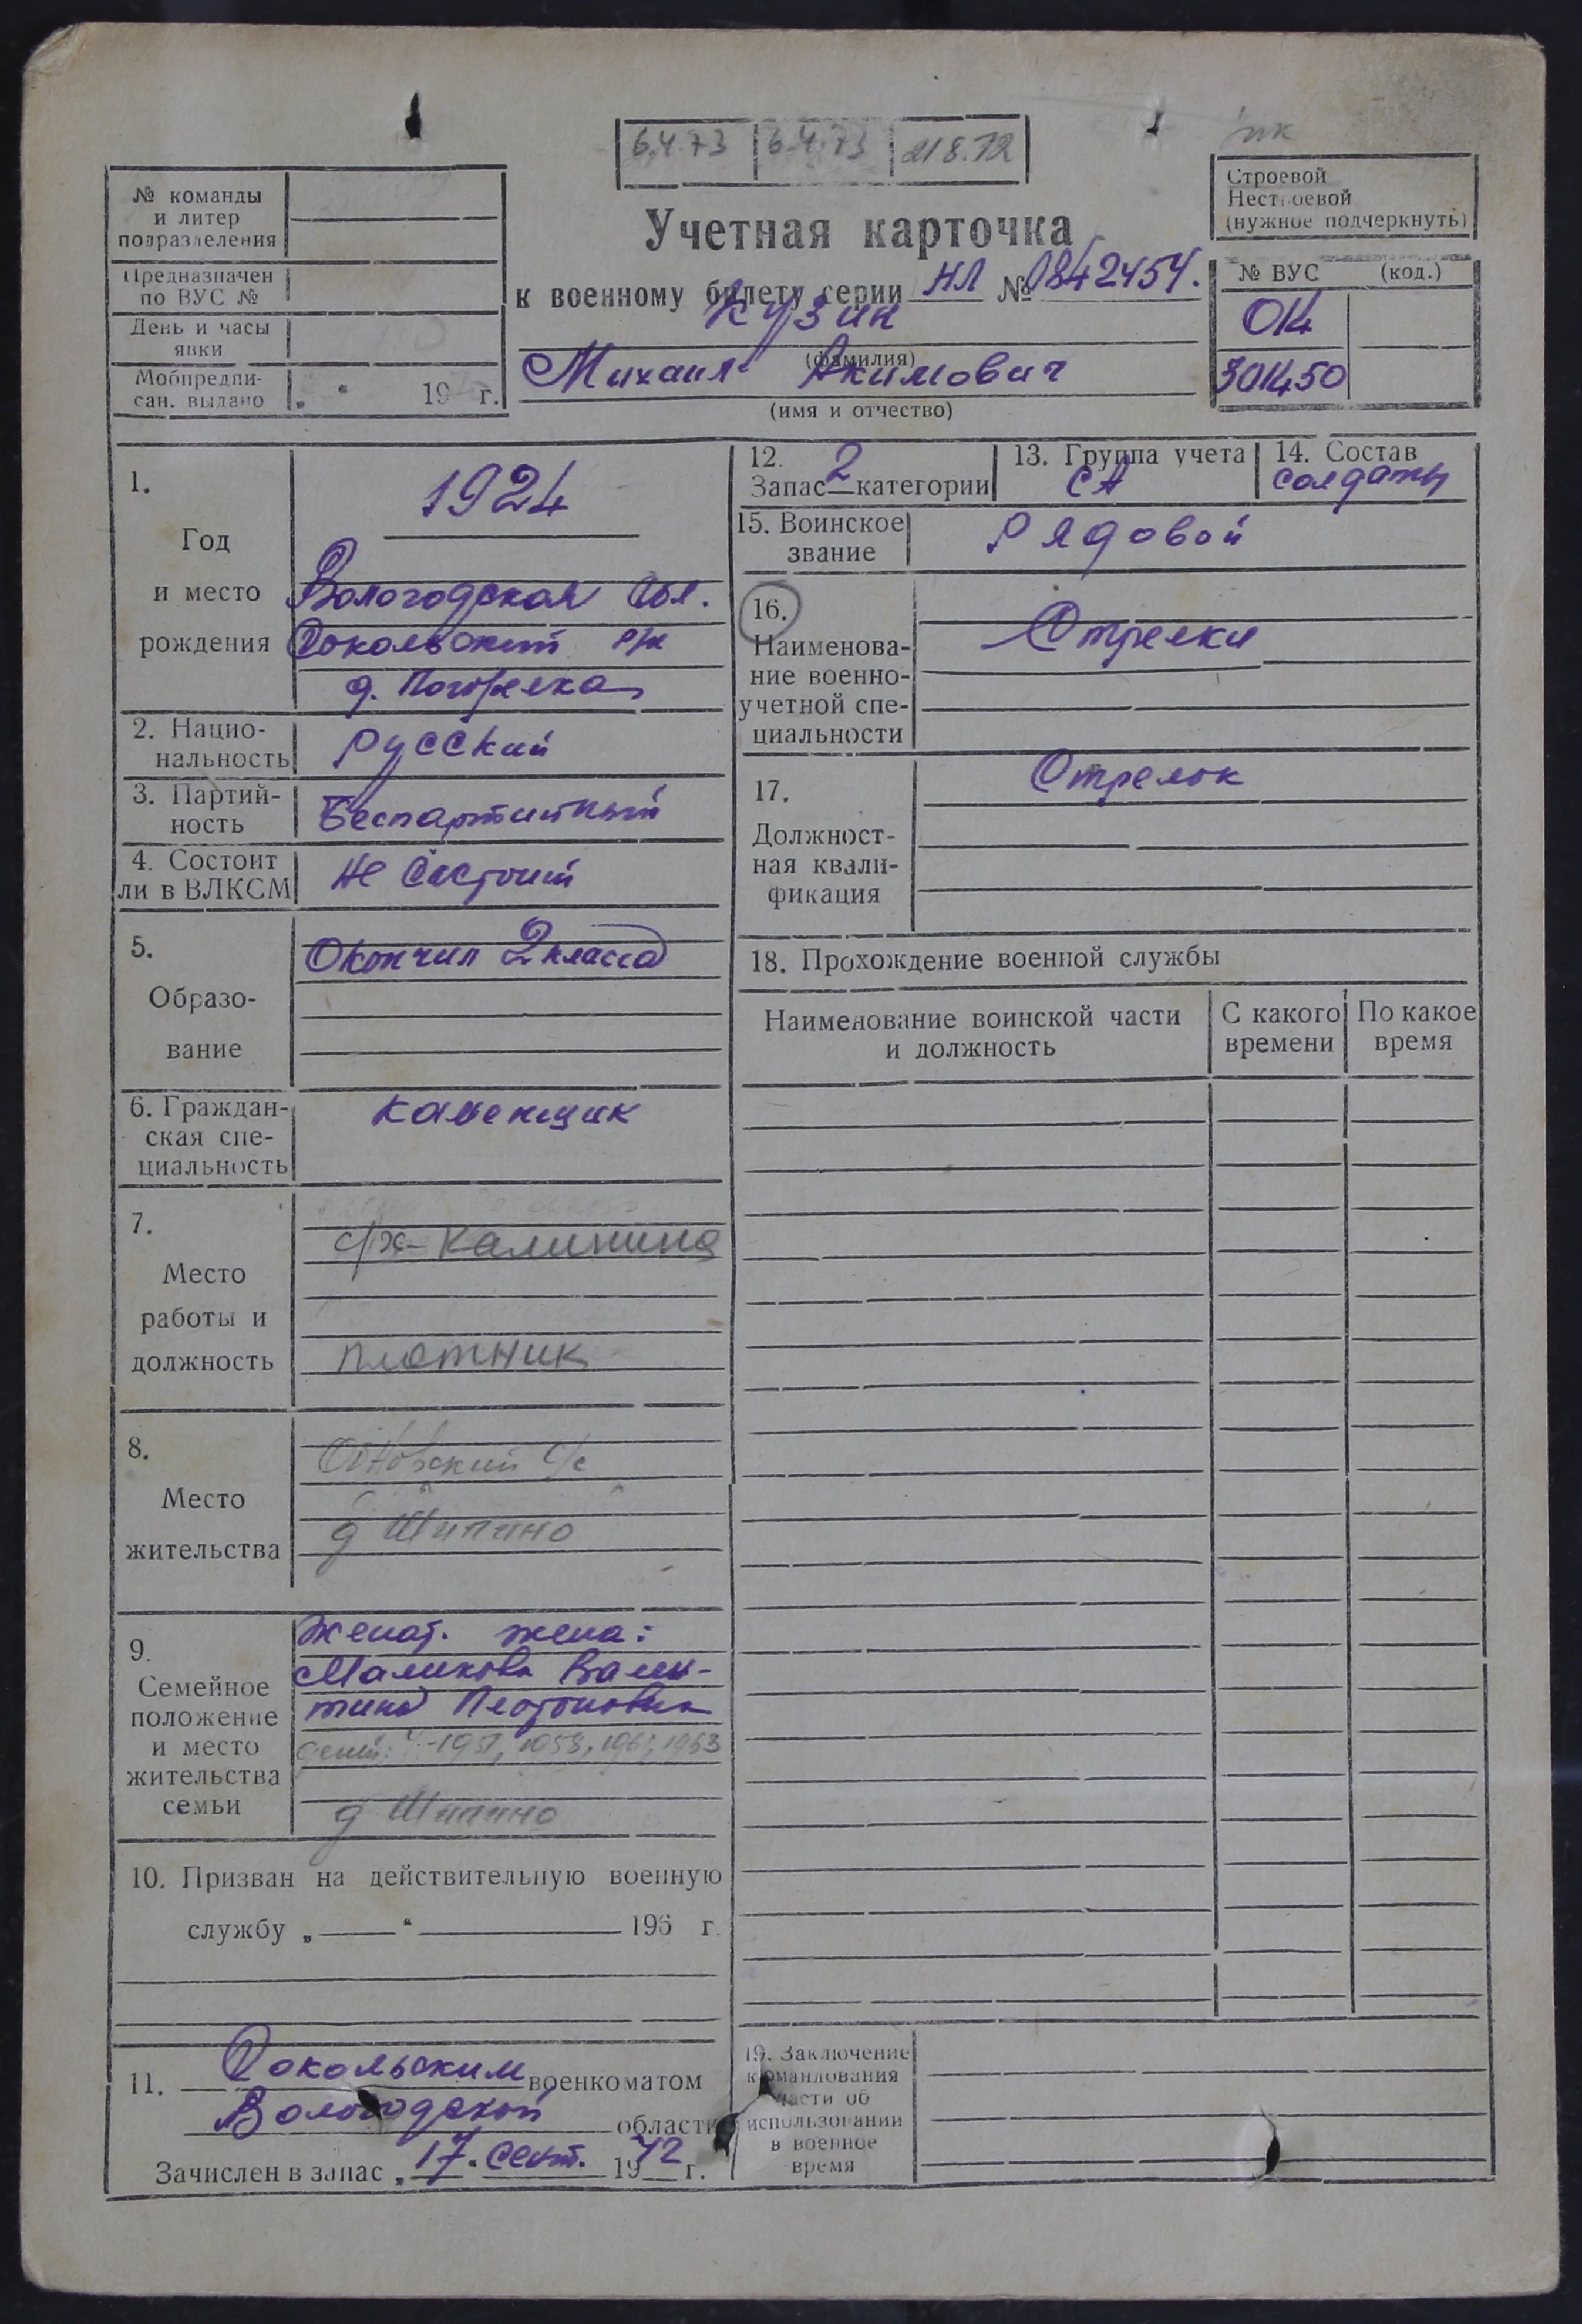 6.4.73 6.4.73 21 8.72
пк
№ команды
и литер
подразделения
Предназначен
по ВУС №
День и часы
явки
Мобпредпи-
сан. выдано „ “ 19 г.
Учетная карточка
к военному билету серии НЛ № 0842454.
Кузин
(фамилия)
Михаил Акимович
(имя и отчество)
Строевой
Нестроевой
(нужное подчеркнуть)
№ ВУС (код.)
014
301450
1.
Год
и место
рождения
1924
Вологодская обл.
Сокольский р/н
д. Погорелка
2. Нацио-
нальность
Русский
3. Партий-
ность
Беспартийный
4. Состоит
ли в ВЛКСМ
Не состоит
5.
Образо-
вание
Окончил 2 класса
6. Граждан-
ская спе-
циальность
Каменщик
7.
Место
работы и
должность
с/х- Калинина
плотник
8.
Место
жительства
с/с
д Шипино
9.
Семейное
положение
и место
жительства
семьи
Женат. жена:
Маликова Вален-
тина
1958, 1961, 1963
д Шипино
10. Призван на действительную военную
службу „ “ 196 г.
11. Сокольским военкоматом
Вологодской области
Зачислен в запас „17“ сент. 1942 г.
12. 2
Запас категории
13. Группа учета
СА
14. Состав
солдаты
15. Воинское
звание
Рядовой
16.
Наименова-
ние военно-
учетной спе-
циальности
Стрелки
17.
Должност-
ная квали-
фикация
Стрелок
18. Прохождение военной службы
Наименование воинской части
и должность
С какого
времени
По какое
время
19. Заключение
командования
части об
использовании
в военное
время